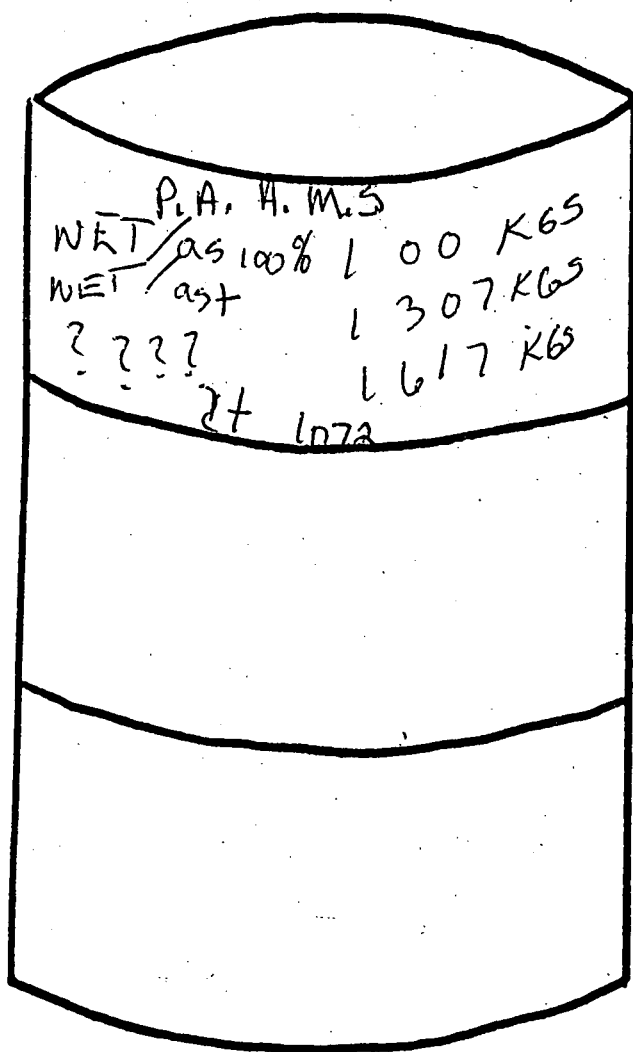 P.A. H. M.S
NET/as 100% 1 00 KGS
NET/ast 1 307 KGS
???? 1617 KGS
2t 1072